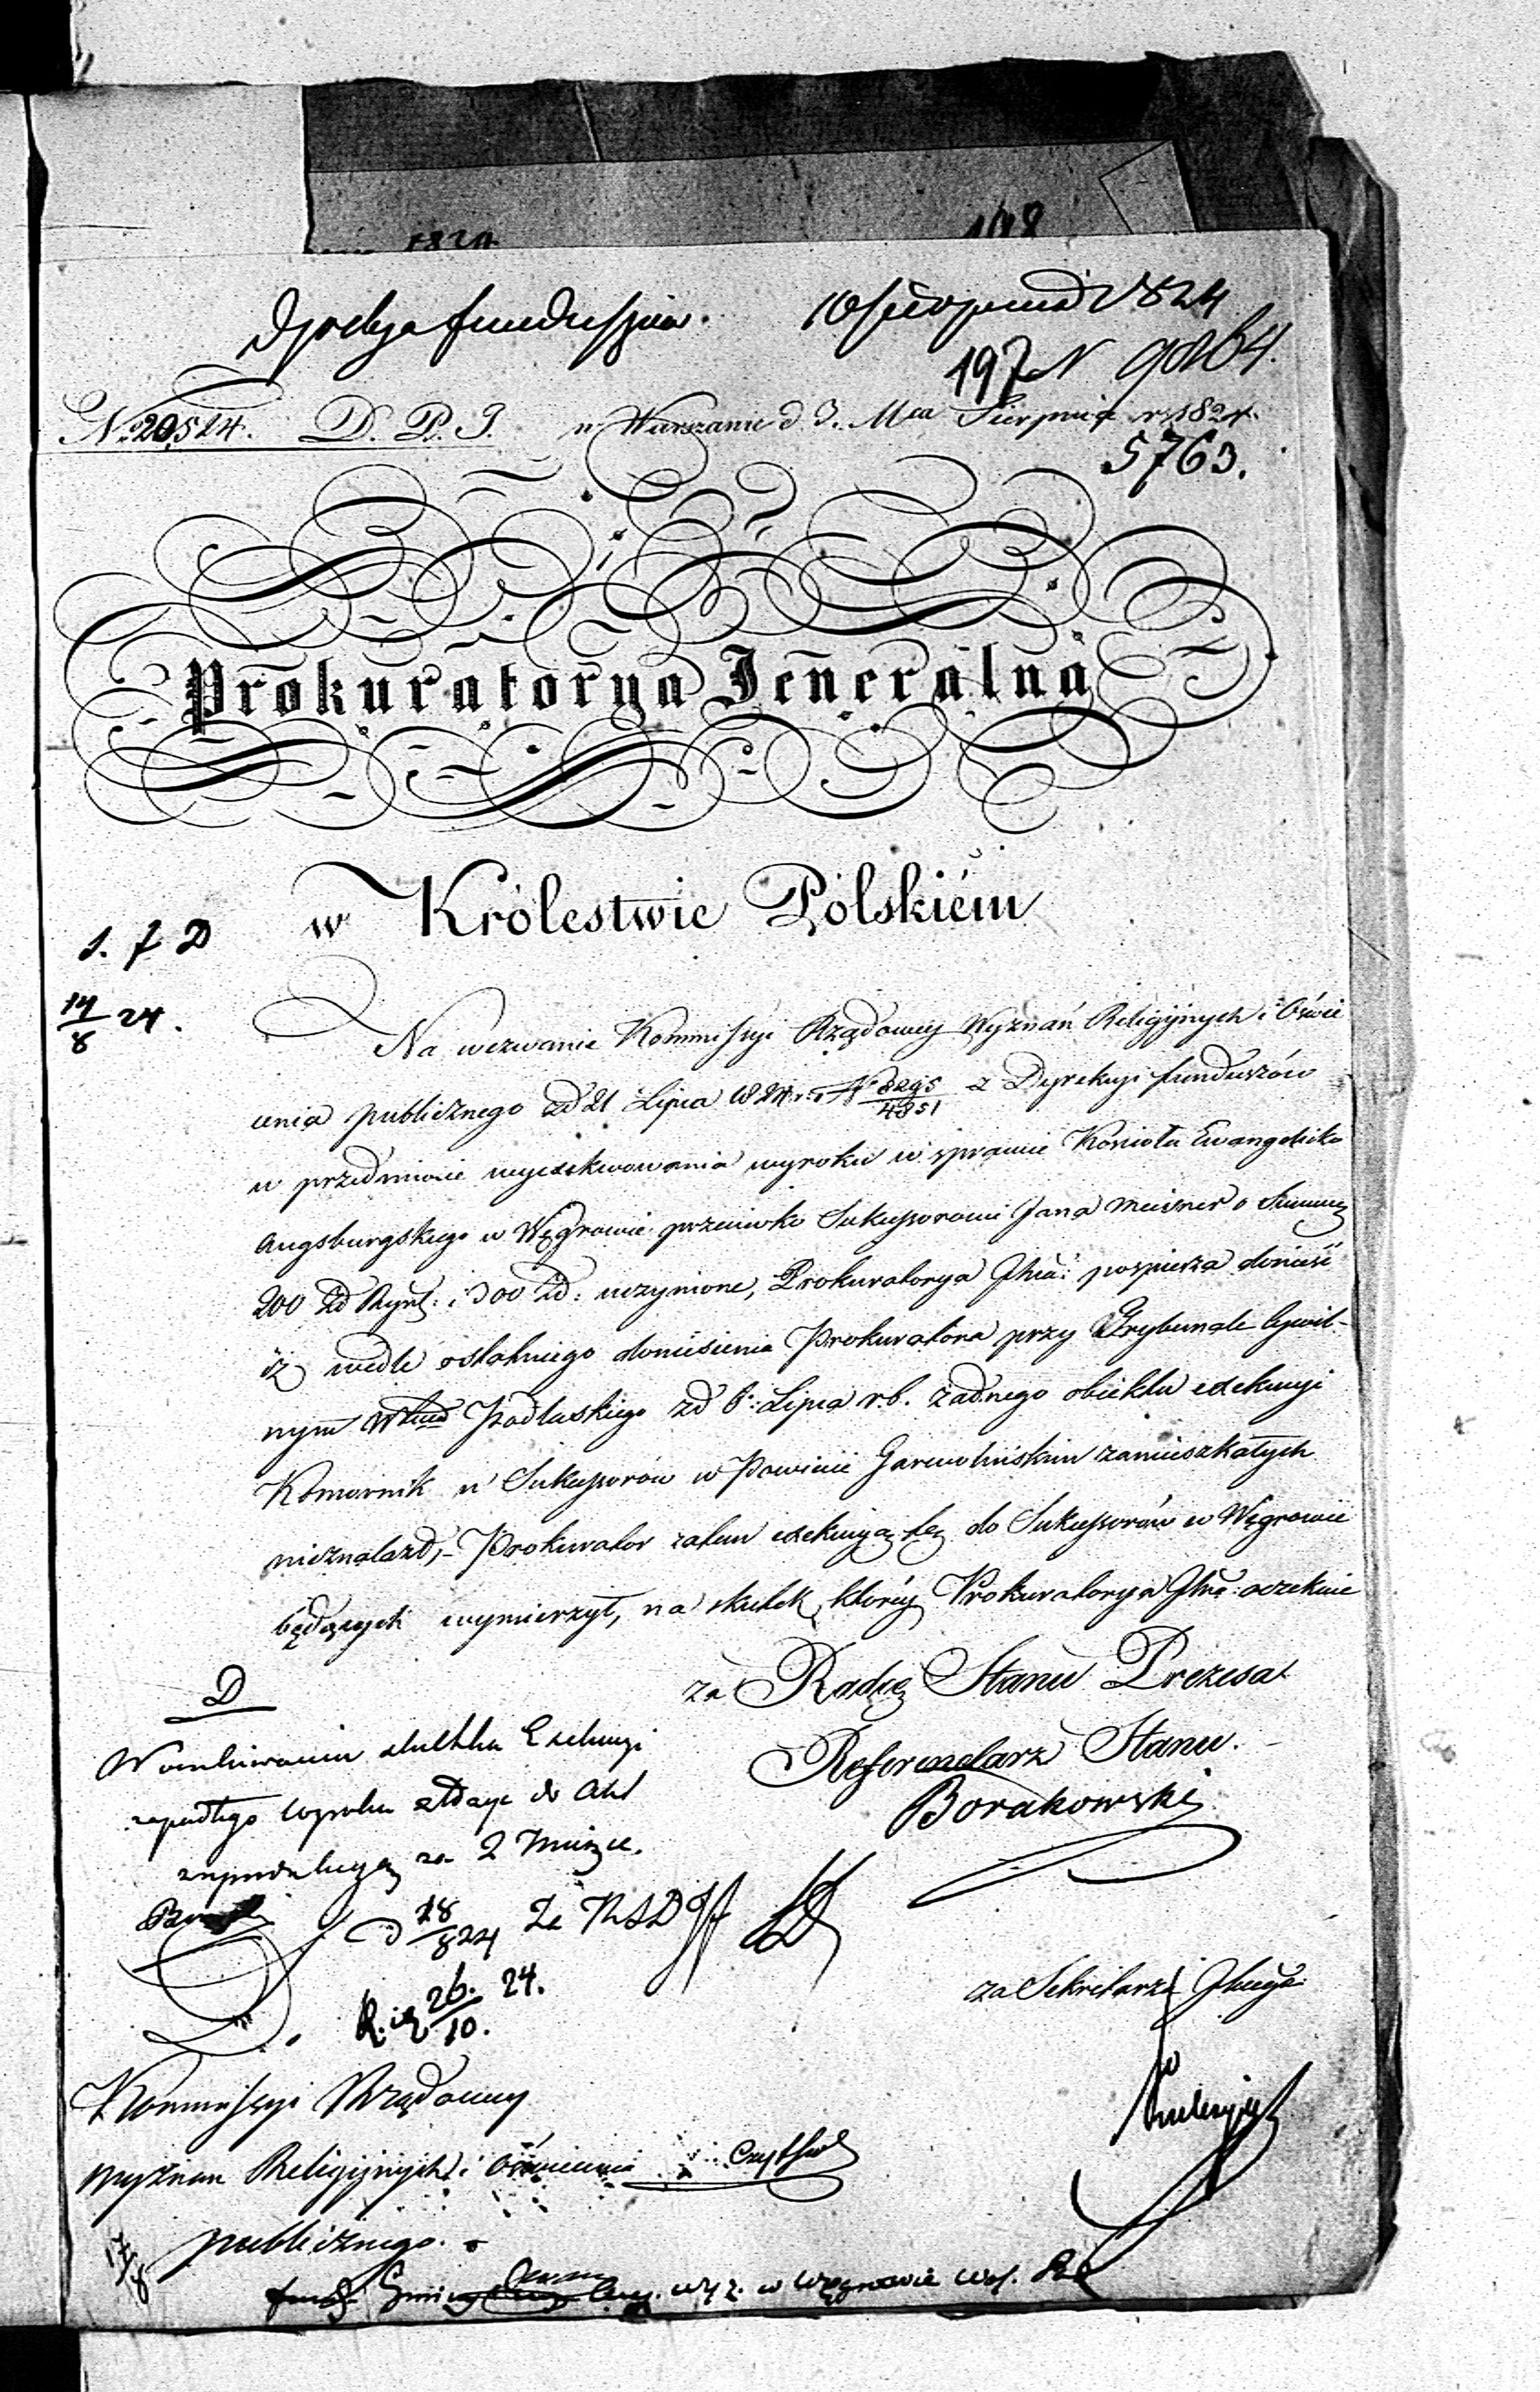 1824
198
Dyrekcja funduszów. 10 Sierpnia 1824
197 N 9864.
No. 20,524. D. P. J. w Warszawie d. 3. Mca Sierpnia r. 1824.
5763.
Prokuratorya Jeneralna
w Królestwie Polskiém
S. f D
14/8 24.
Na wezwanie Kommissyi Rządowéy Wyznań Religiynych i Oświe
cenia publicznego z d 21 Lipca 1824 r. No 8295/4851 z Dyrekcyi funduszów
w przedmiocie wyexekwowania wyroku w sprawie Kościoła Ewangelicko
Augsburgskiego w Węgrowie przeciwko Sukcessorom Jana Meisner o Summę
200 Zł Ryńs: i 300 Zł: uczynione, Prokuratorya Jłna: pospiesza donieść
iż wedle ostatniego doniesienia Prokuratora przy Trybunale Cywil-
nym Wtwa Podlaskiego z d 6: Lipca r. b. żadnego obiektu exekucyi
Komornik u Sukcessorów w Powiecie Garwolińskim zamieszkałych
nieznalazł,- Prokurator zatem exekucyą tę do Sukcessorów w Węgrowie
będących wymierzył, na skutek któréy Prokuratorya Jłna: oczekuie
za Radcę Stanu Prezesa
Referendarz Stanu.
Borakowski
D
W oczekiwaniu skutku Exekucyi
zapadłego wyroku złożyć do Akt
za 2 Miesiące.
D 18/8 24 Za
26./10. 24.
za Sekretarza Jłnego
Kommissyi Rządowéy
Wyznań Religiynych i Oświecenia
publicznego.
17/8
w Węgrowie Woj.